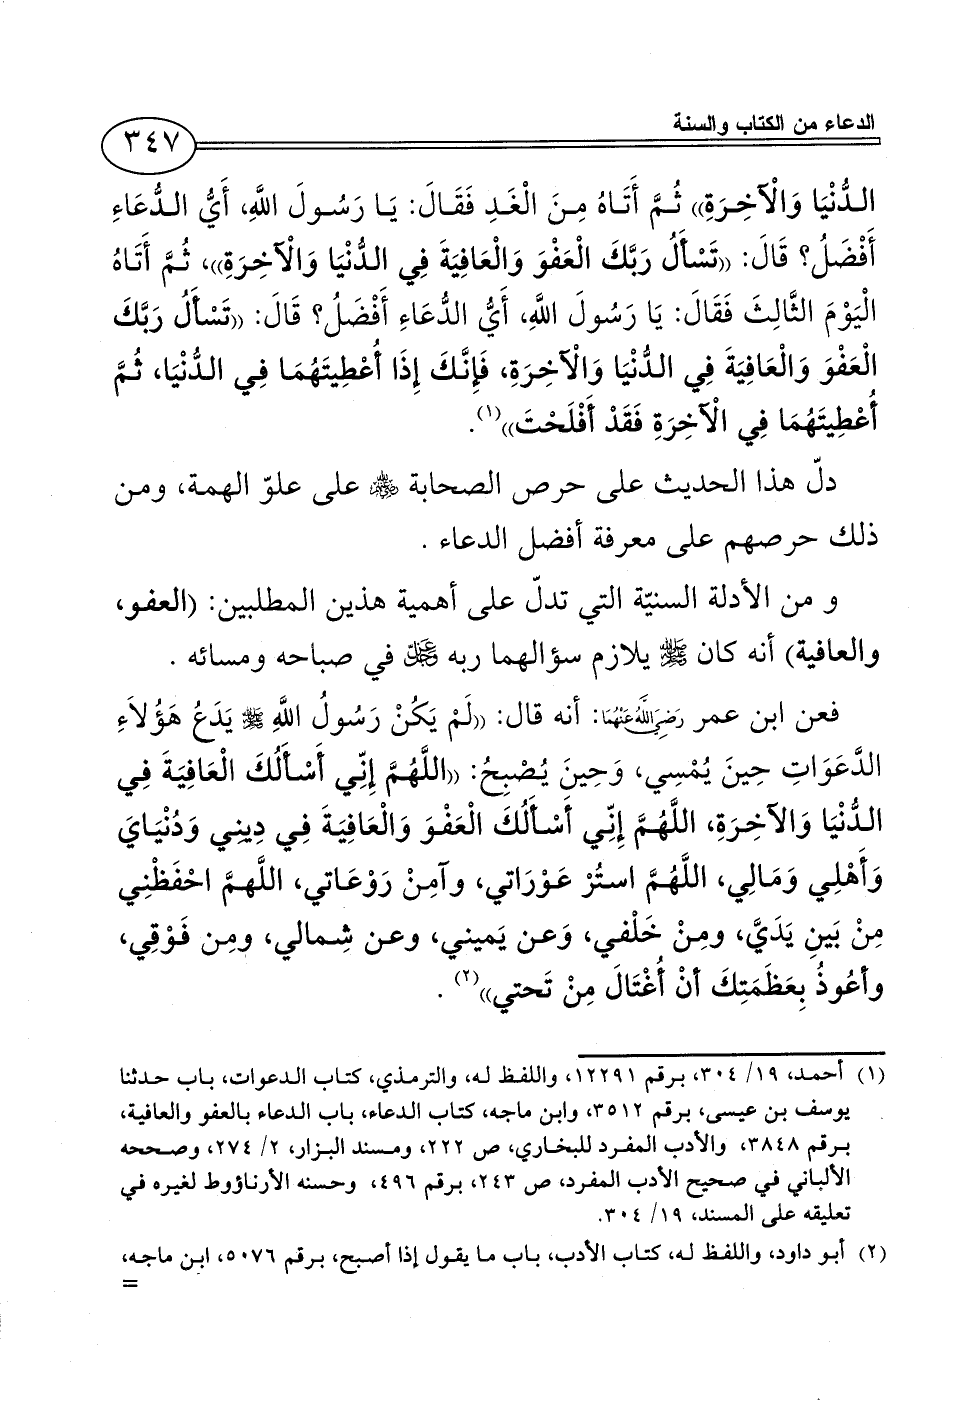 الدعاء من الكتاب والسنة
٣٤٧
الدُّنْيَا وَالْآخِرَةِ)) ثُمَّ أَتَاهُ مِنَ الْغَدِ فَقَالَ: يَا رَسُولَ اللَّهِ، أَيُّ الدُّعَاءِ
أَفْضَلُ؟ قَالَ: ((تَسْأَلُ رَبَّكَ الْعَفْوَ وَالْعَافِيَةَ فِي الدُّنْيَا وَالْآخِرَةِ))، ثُمَّ أَتَاهُ
الْيَوْمَ الثَّالِثَ فَقَالَ: يَا رَسُولَ اللَّهِ، أَيُّ الدُّعَاءِ أَفْضَلُ؟ قَالَ: ((تَسْأَلُ رَبَّكَ
الْعَفْوَ وَالْعَافِيَةَ فِي الدُّنْيَا وَالْآخِرَةِ، فَإِنَّكَ إِذَا أُعْطِيتَهُمَا فِي الدُّنْيَا، ثُمَّ
أُعْطِيتَهُمَا فِي الْآخِرَةِ فَقَدْ أَفْلَحْتَ))(١).
دلّ هذا الحديث على حرص الصحابة ﷺ على علوّ الهمة، ومن
ذلك حرصهم على معرفة أفضل الدعاء .
و من الأدلة السنيّة التي تدلّ على أهمية هذين المطلبين: (العفو،
والعافية) أنه كان ﷺ يلازم سؤالهما ربه عز وجل في صباحه ومسائه .
فعن ابن عمر رَضِيَ اللَّهُ عَنْهُمَا: أنه قال: ((لَمْ يَكُنْ رَسُولُ اللَّهِ ﷺ يَدَعُ هَؤُلاَءِ
الدَّعَوَاتِ حِينَ يُمْسِي، وَحِينَ يُصْبِحُ: ((اللَّهُمَّ إِنِّي أَسْأَلُكَ الْعَافِيَةَ فِي
الدُّنْيَا وَالْآخِرَةِ، اللَّهُمَّ إِنِّي أَسْأَلُكَ الْعَفْوَ وَالْعَافِيَةَ فِي دِينِي وَدُنْيَايَ
وَأَهْلِي وَمَالِي، اللَّهُمَّ استُرْ عَوْرَاتي، وآمِنْ رَوْعَاتي، اللَّهمَّ احْفَظْنِي
مِنْ بَينِ يَدَيَّ، ومِنْ خَلْفي، وَعَن يَميني، وعن شِمالي، ومِن فَوْقِي،
وأعُوذُ بِعَظَمَتِكَ أنْ أُغْتَالَ مِنْ تَحتي))(٢) .
(١) أحمد، ١٩/ ٣٠٤، برقم ١٢٢٩١، واللفظ له، والترمذي، كتاب الدعوات، باب حدثنا
يوسف بن عيسى، برقم ٣٥١٢، وابن ماجه، كتاب الدعاء، باب الدعاء بالعفو والعافية،
برقم ٣٨٤٨، والأدب المفرد للبخاري، ص ٢٢٢، ومسند البزار، ٢/ ٢٧٤، وصححه
الألباني في صحيح الأدب المفرد، ص ٢٤٣، برقم ٤٩٦، وحسنه الأرناؤوط لغيره في
تعليقه على المسند، ١٩/ ٣٠٤.
(٢) أبو داود، واللفظ له، كتاب الأدب، باب ما يقول إذا أصبح، برقم ٥٠٧٦، ابن ماجه،
=